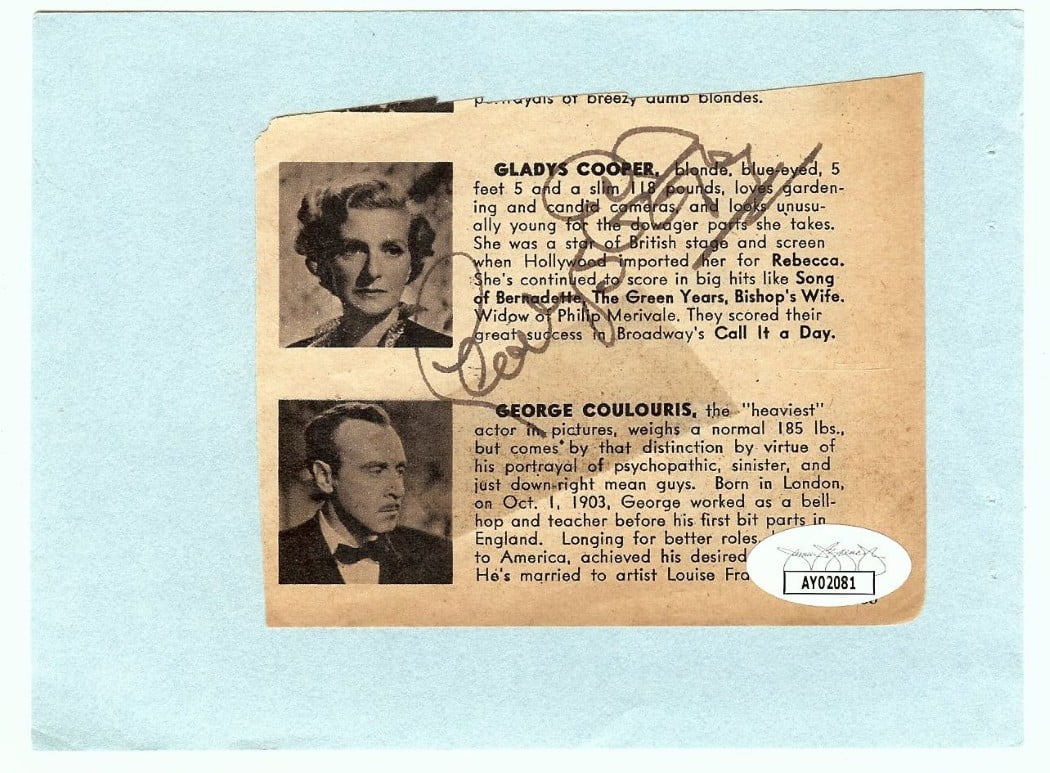 of breezy dumb blondes.
GLADYS COOPER, blonde, blue-eyed, 5
feet 5 and a slim 118 pounds, loves garden-
ing and candid cameras, and looks unusu-
ally young for the dowager parts she takes.
She was a star of British stage and screen
when Hollywood imported her for Rebecca.
She's continued to score in big hits like Song
of Bernadette, The Green Years, Bishop's Wife.
Widow of Philip Merivale. They scored their
great success in Broadway's Call It a Day.
GEORGE COULOURIS, the "heaviest"
actor in pictures, weighs a normal 185 lbs.,
but comes by that distinction by virtue of
his portrayal of psychopathic, sinister, and
just down-right mean guys. Born in London,
on Oct. 1, 1903, George worked as a bell-
hop and teacher before his first bit parts in
England. Longing for better roles,
to America, achieved his desired
He's married to artist Louise Fra
AY02081